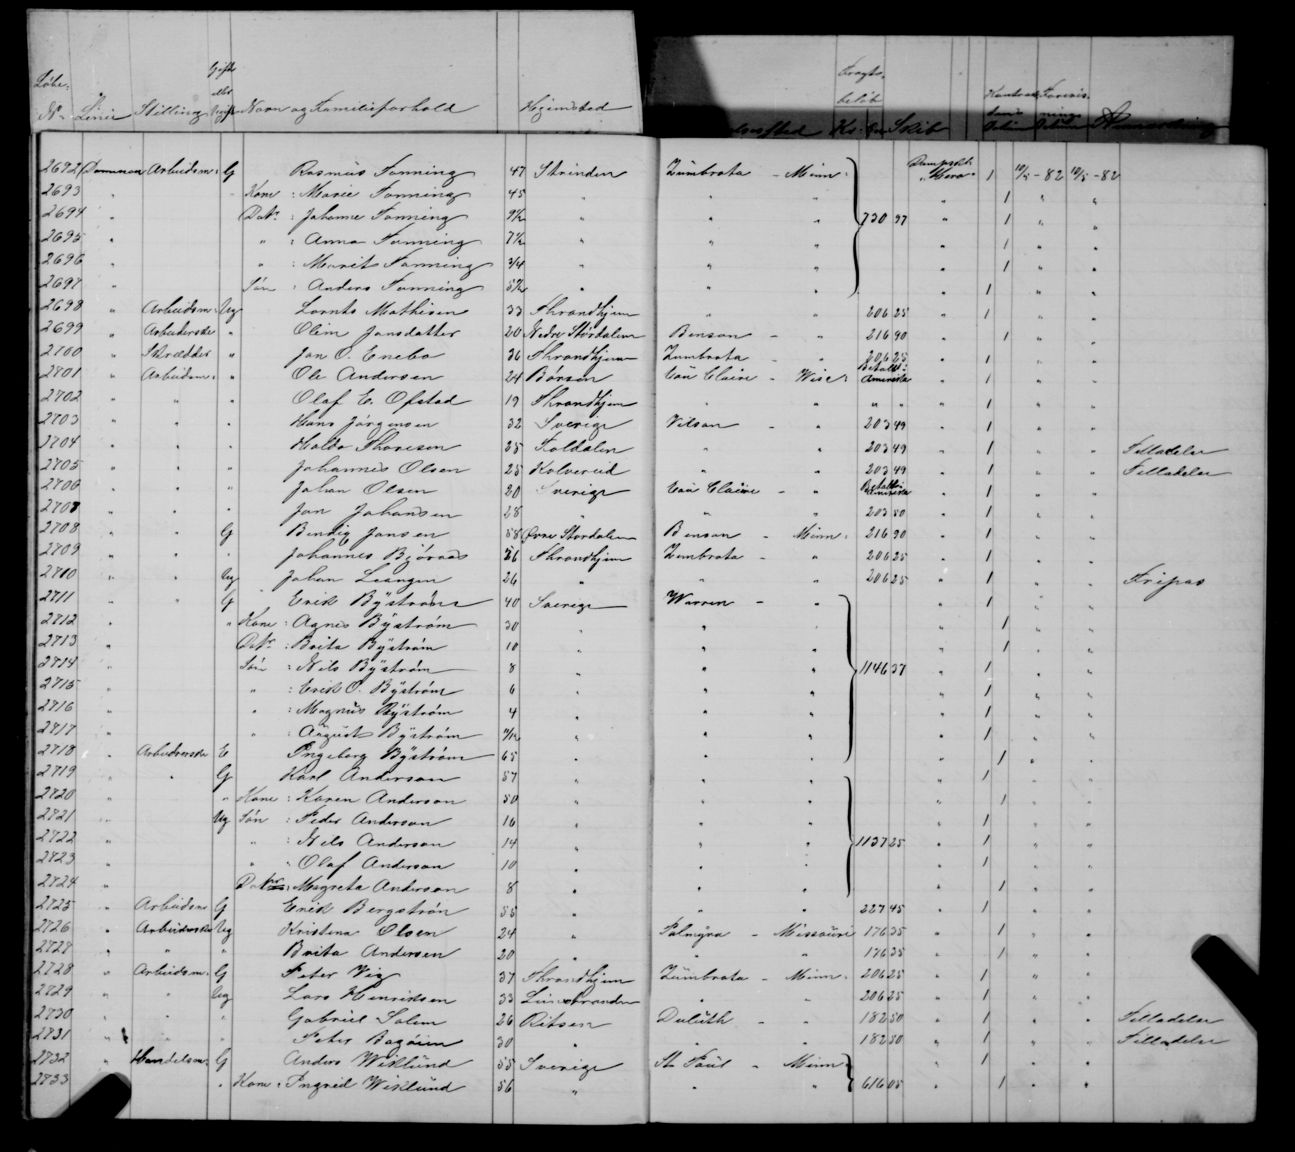 Løbe- Gift Fragt-
eller beløb Kontrakt Forevis-
No Linie Stilling Ugift Navn og Familieforhold Hjemsted Ks. Skib
2692 Dominion Arbeidsm: G Rasmus Fanning 47 Strinden Zumbrota - Minn: Dampsk: "Hero" 1 10/5 - 82 10/5 - 82
2693 " " Kone : Marie Fanning 45 " " " " 1 " "
2694 " Datr : Johanne Fanning 9½ " " " 730 97 " 1 " "
2695 " " : Anna Fanning 7½ " " " " 1 " "
2696 " " : Marit Fanning 3/4 " " " " 1 " "
2697 " Søn : Anders Fanning 5½ " " " " 1 " "
2698 " Arbeidsm: Ug Lornts Mathisen 33 Throndhjem " " 206 25 " 1 " "
2699 " Arbeiderske " Olim Jonsdatter 20 Nedre Stördalen Benson - " 216 90 " 1 " "
2700 " Skrædder " Jon O. Enebo 36 Throndhjem Zumbrota " 206 25 " 1 " "
2701 " Arbeidsm: " Ole Andersen 24 Børsen Eau Claire - Wisc: Betalt i Amerika " 1 " "
2702 " " " Olaf E. Ofstad 19 Throndhjem " " " " " 1 " "
2703 " " " Hans Jörgensen 32 Sverige Vilson - " 203 49 " 1 " "
2704 " " " Haldo Thoresen 35 Foldalen " " 203 49 " 1 " " Filladeler
2705 " " " Johannes Olsen 25 Kolvereid " " 203 49 " 1 " " Filladeler
2706 " " " Johan Olsen 20 Sverige Eau Claire - " Betalt i Amerika " 1 " "
2707 " " " Jon Johansen 28 " " " 203 50 " 1 " "
2708 " " G Bendig Jonsen 58 Øvre Stordalen Benson - Minn: 216 90 " 1 " "
2709 " " " Johannes Björaas 26 Throndhjem Zumbrota - " 206 25 " 1 " "
2710 " " Ug Johan Leangen 26 " " " 206 25 " 1 " " Fripas
2711 " " G Erik Byströms 40 Sverige Warren - " " 1 " "
2712 " " Kone : Agnes Byström 30 " " " " 1 " "
2713 " Datr : Brita Byström 10 " " " " 1 " "
2714 " Søn : Nils Byström 8 " " " 1146 37 " 1 " "
2715 " " : Erik O. Byström 6 " " " " 1 " "
2716 " " : Magnus Byström 4 " " " " 1 " "
2717 " " : August Byström " " " " 1 " "
2718 " Arbeiderske E Ingeborg Byström 65 " " " " 1 " "
2719 " " G Karl Anderson 57 " " " " 1 " "
2720 " " Kone : Karen Anderson 50 " " " " 1 " "
2721 " Ug Søn : Peder Anderson 16 " " " " 1 " "
2722 " " : Nils Anderson 14 " " " 1137 25 " 1 " "
2723 " " : Olaf Anderson 10 " " " " 1 " "
2724 " Datr : Magreta Anderson 8 " " " " 1 " "
2725 " Arbeidsm G Erik Bergström 55 " " " 227 45 " 1 " "
2726 " Arbeiderske Ug Kristina Olsen 24 " Palmyra - Missouri 176 35 " 1 " "
2727 " " " Brita Andersen 20 " " " 176 35 " 1 " "
2728 " Arbeidsm. G Peter Vig 37 Throndhjem Zumbrota - Minn: 206 25 " 1 " "
2729 " " Ug Lars Henriksen 33 " " 206 25 " 1 " "
2730 " " " Gabriel Salem 26 Ritsen Duluth - " 182 50 " 1 " " Filladeler
2731 " " " Peter 30 " " " 182 50 " 1 " " Filladeler
2732 " Handelsm: G Anders Wiklund 55 Sverige St. Paul - Minn: " 1 " "
2733 " Kone : Ingrid Wiklund 56 " " " 616 05 " 1 " "